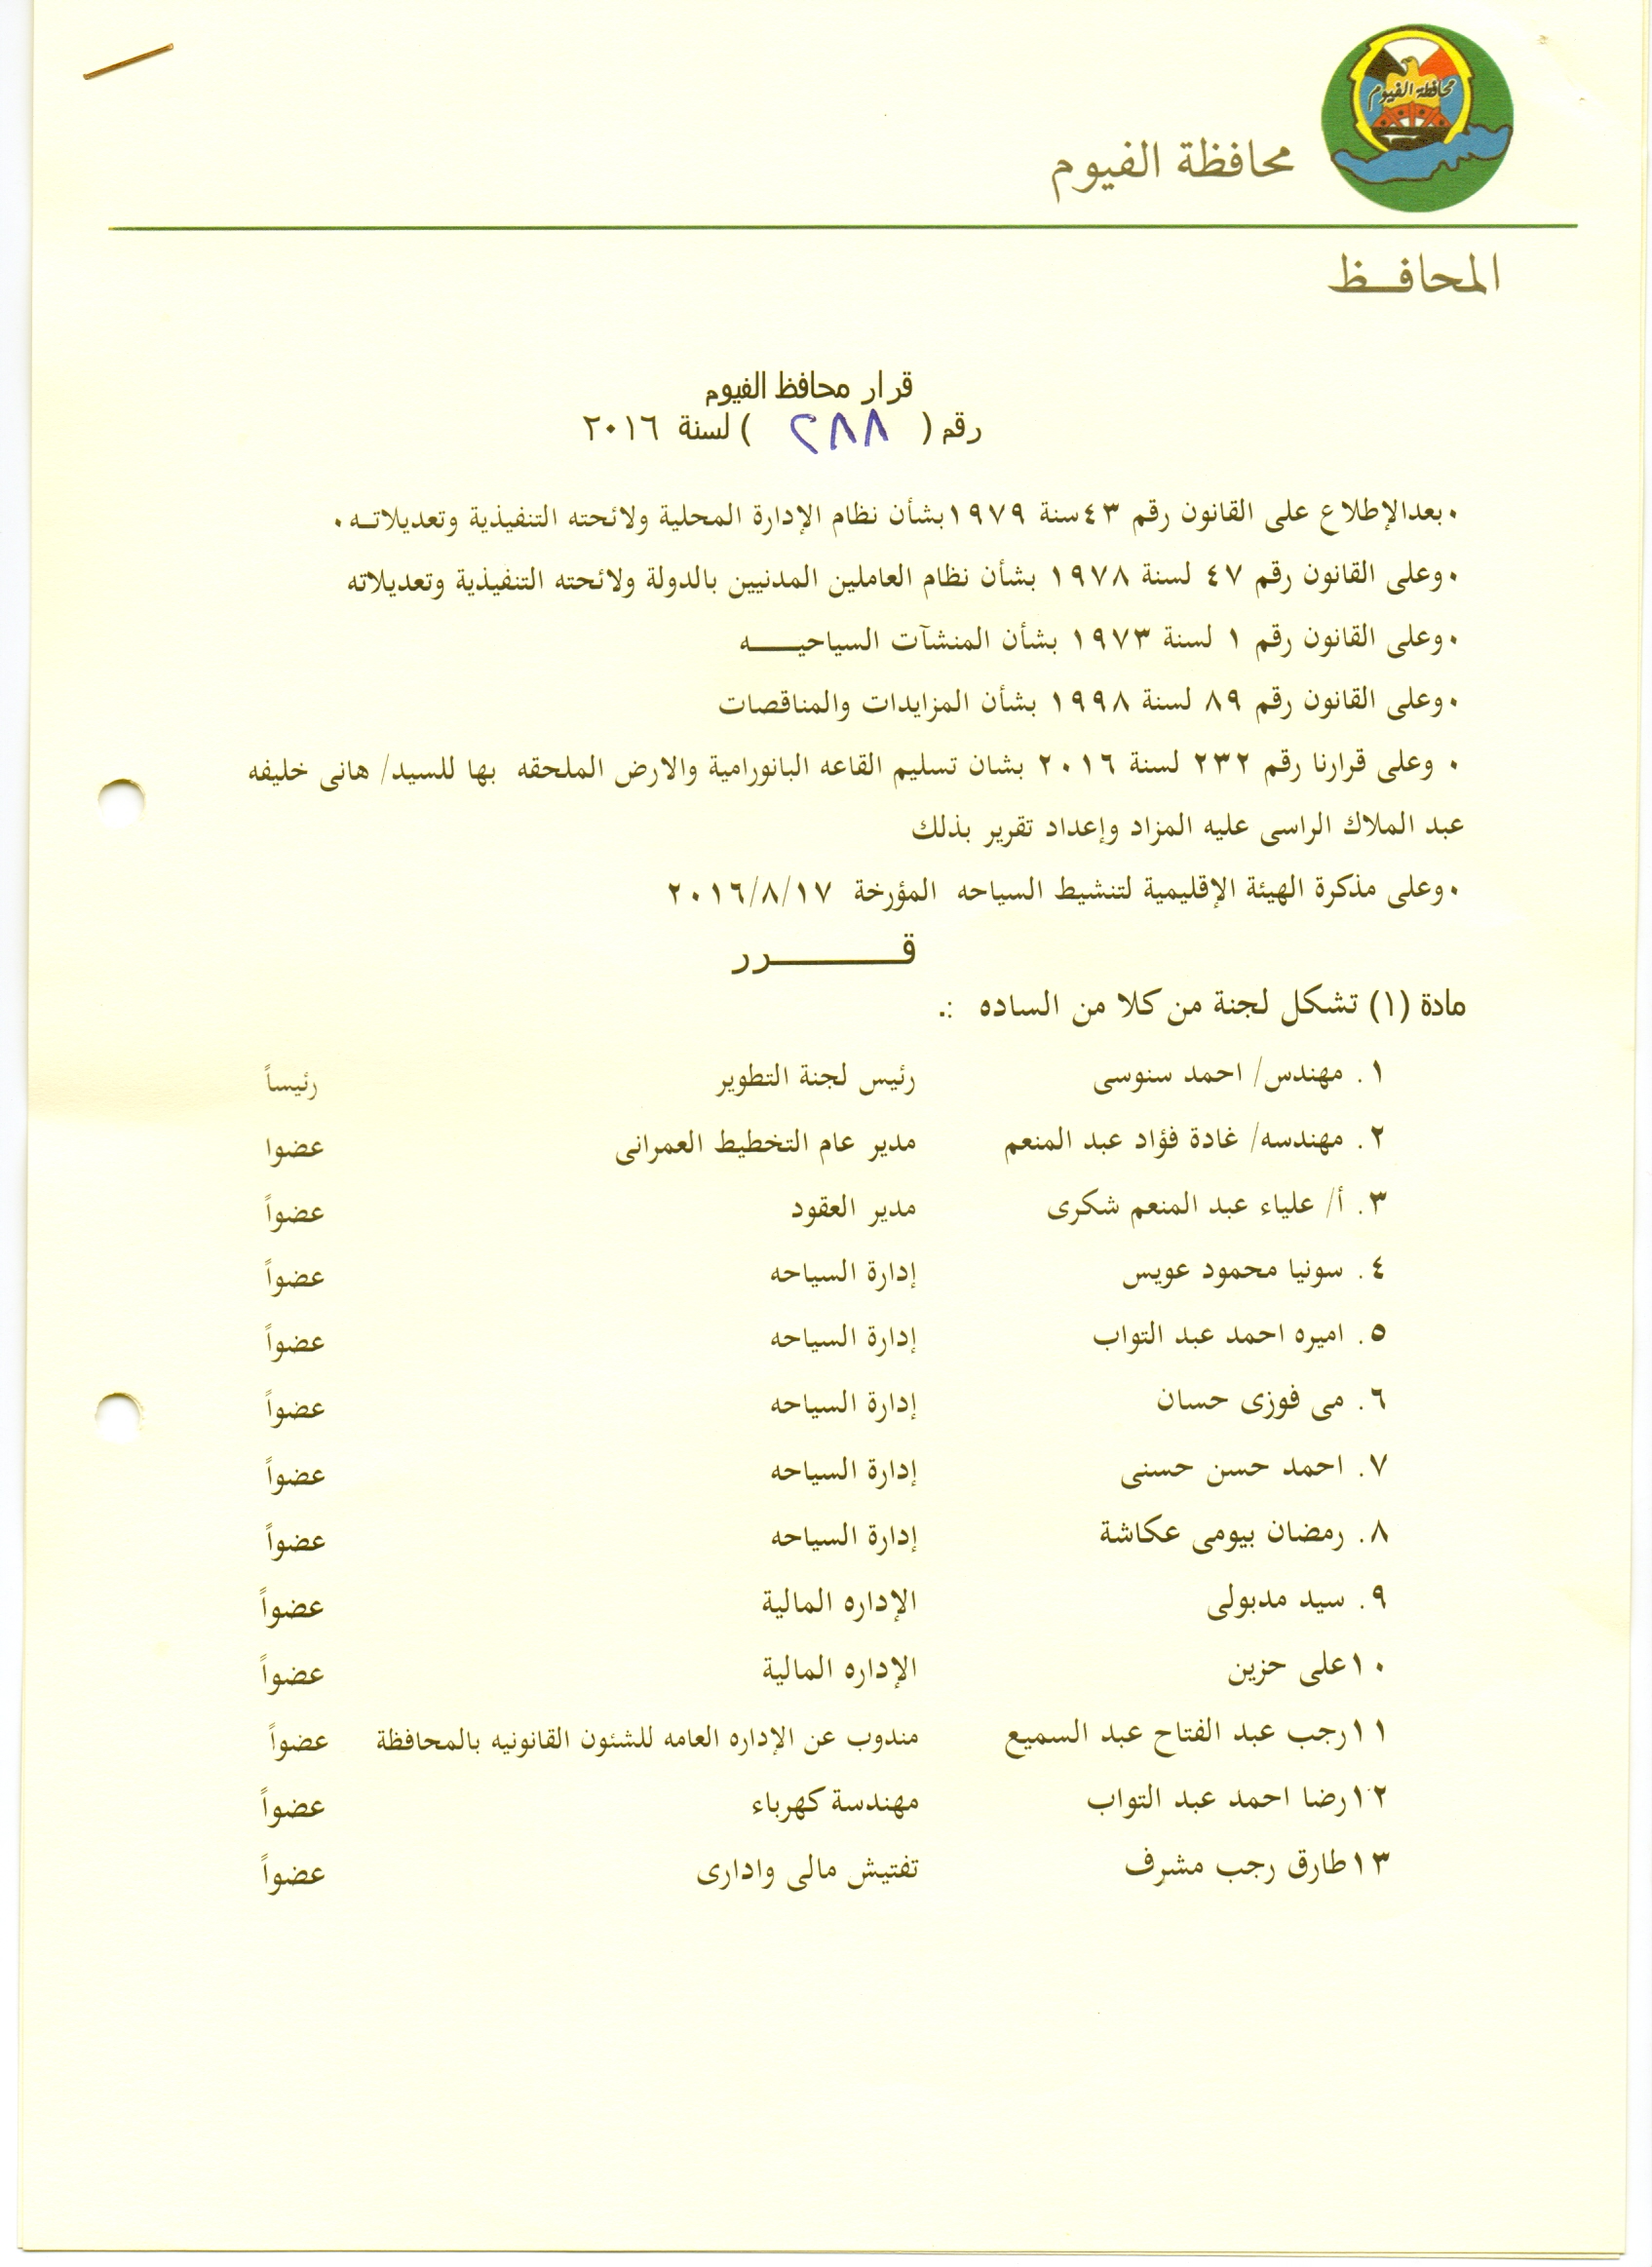 محافظة الفيوم
محافظة الفيوم
المحافـــظ
قرار محافظ الفيوم
رقم ( ٢٨٨ ) لسنة ٢٠١٦
• بعدالإطلاع على القانون رقم ٤٣سنة ١٩٧٩بشأن نظام الإدارة المحلية ولائحته التنفيذية وتعديلاتـه •
• وعلى القانون رقم ٤٧ لسنة ١٩٧٨ بشأن نظام العاملين المدنيين بالدولة ولائحته التنفيذية وتعديلاته
• وعلى القانون رقم ١ لسنة ١٩٧٣ بشأن المنشآت السياحيـــــه
• وعلى القانون رقم ٨٩ لسنة ١٩٩٨ بشأن المزايدات والمناقصات
• وعلى قرارنا رقم ٢٣٢ لسنة ٢٠١٦ بشان تسليم القاعه البانورامية والارض الملحقه بها للسيد/ هانى خليفه
عبد الملاك الراسى عليه المزاد وإعداد تقرير بذلك
• وعلى مذكرة الهيئة الإقليمية لتنشيط السياحه المؤرخة ٢٠١٦/٨/١٧
قـــــــــرر
مادة (١) تشكل لجنة من كلا من الساده :.
١. مهندس/ احمد سنوسى رئيس لجنة التطوير رئيساً
٢. مهندسه/ غادة فؤاد عبد المنعم مدير عام التخطيط العمرانى عضوا
٣. أ/ علياء عبد المنعم شكرى مدير العقود عضواً
٤. سونيا محمود عويس إدارة السياحه عضواً
٥. اميره احمد عبد التواب إدارة السياحه عضواً
٦. مى فوزى حسان إدارة السياحه عضواً
٧. احمد حسن حسنى إدارة السياحه عضواً
٨. رمضان بيومى عكاشة إدارة السياحه عضواً
٩. سيد مدبولى الإداره المالية عضواً
١٠على حزين الإداره المالية عضواً
١١رجب عبد الفتاح عبد السميع مندوب عن الإداره العامه للشئون القانونيه بالمحافظة عضواً
١٢رضا احمد عبد التواب مهندسة كهرباء عضواً
١٣طارق رجب مشرف تفتيش مالى وادارى عضواً